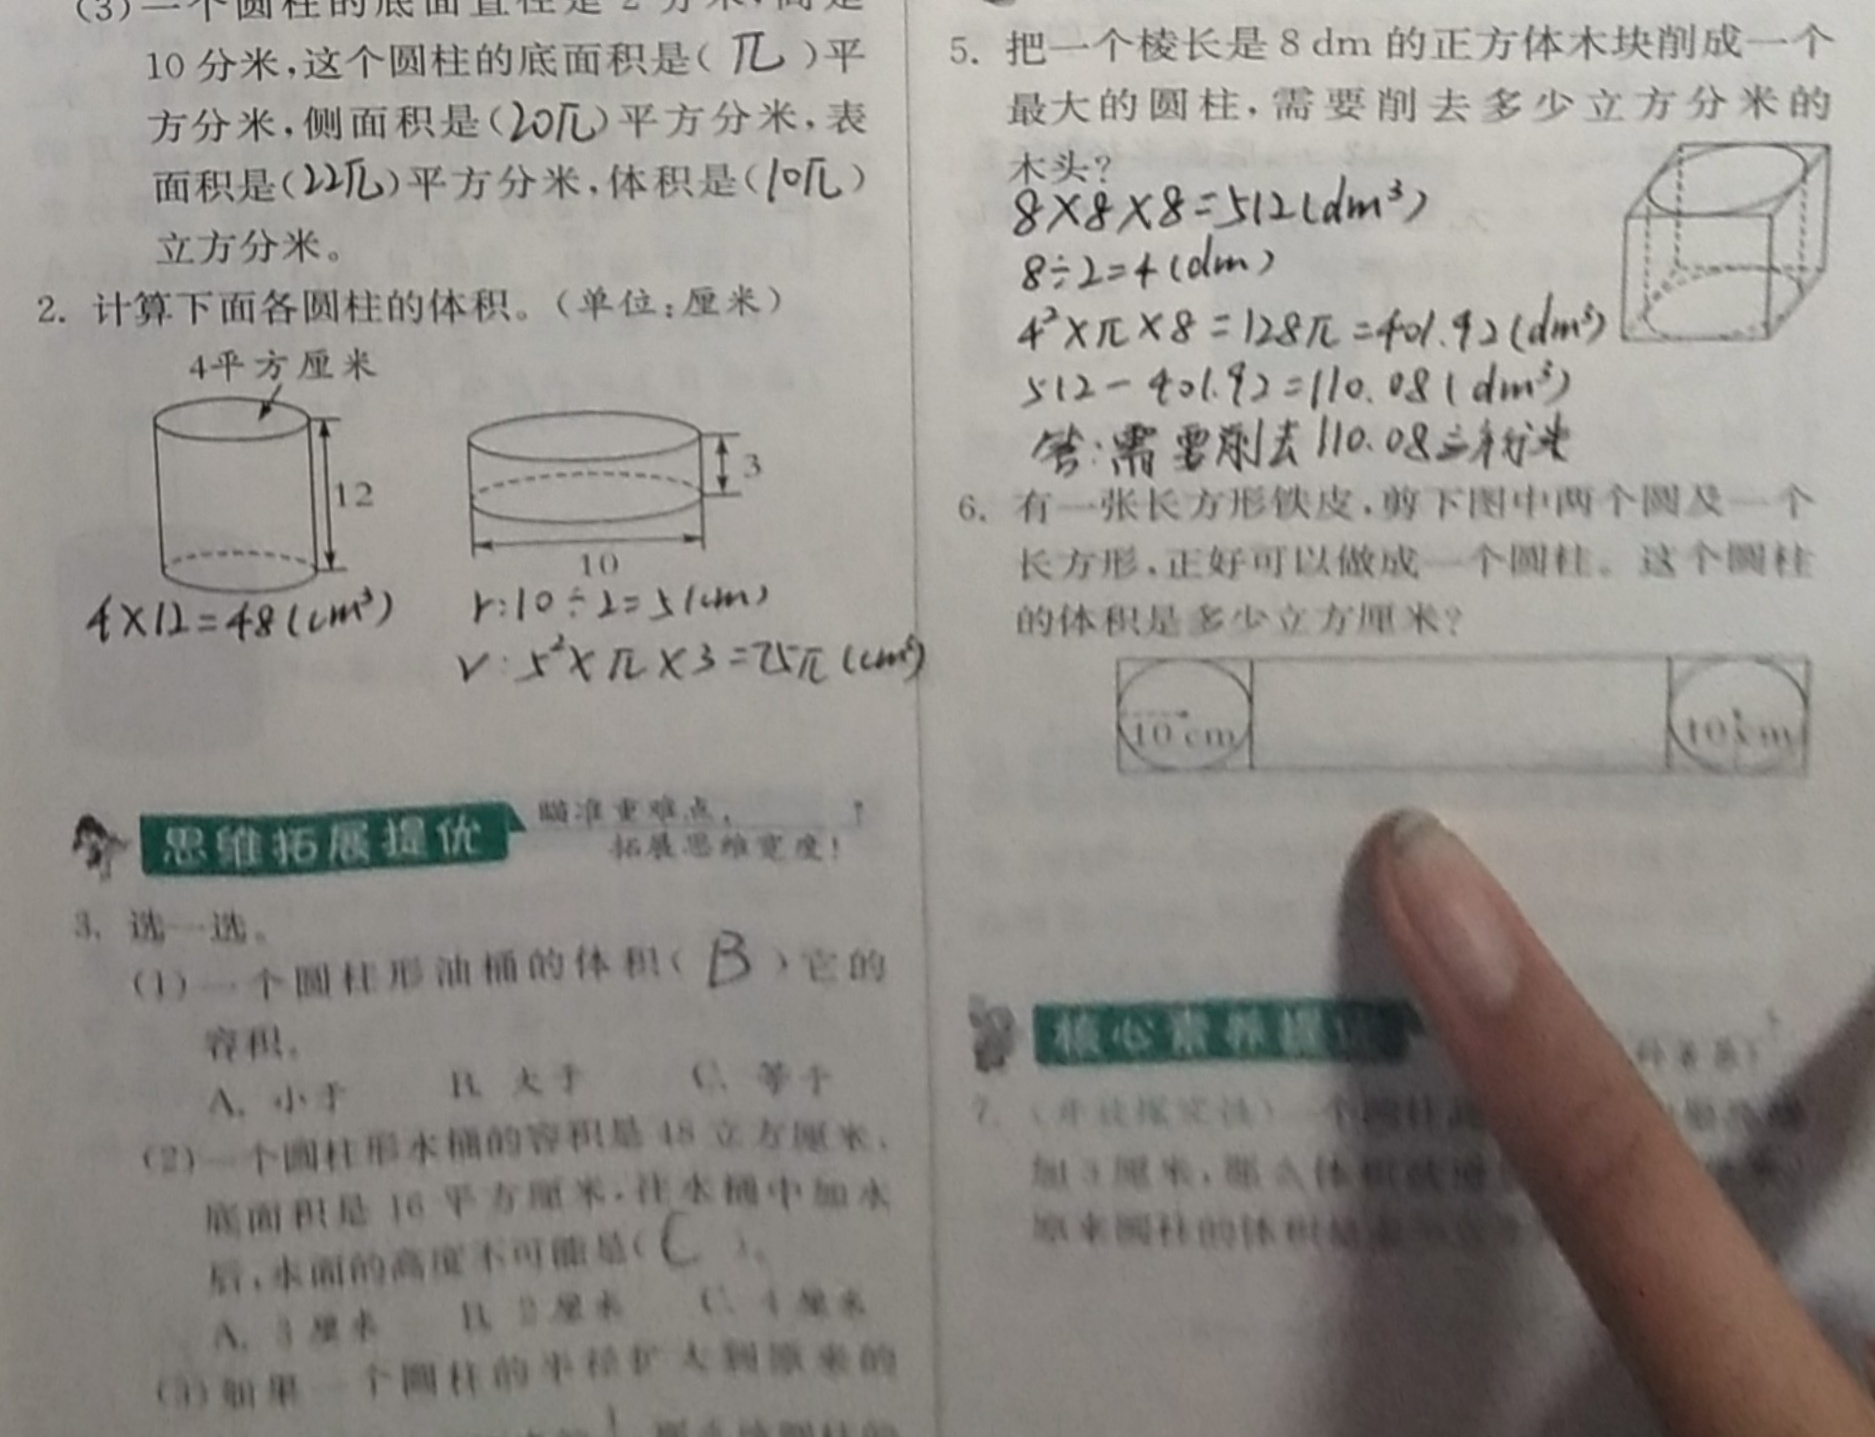 (3)一个圆柱的底面直径是2分米,高是
10分米,这个圆柱的底面积是(π)平
方分米,侧面积是(20π)平方分米,表
面积是(22π)平方分米,体积是(10π)
立方分米。
2. 计算下面各圆柱的体积。(单位:厘米)
4平方厘米
12
3
10
4×12=48(cm³)
r:10÷2=5(cm)
V:5²×π×3=75π(cm³)
思维拓展提优
瞄准重难点,
拓展思维宽度!
3. 选一选。
(1)一个圆柱形油桶的体积(B)它的
容积。
A. 小于 B. 大于 C. 等于
(2)一个圆柱形水桶的容积是48立方厘米,
底面积是16平方厘米,往水桶中加水
后,水面的高度不可能是(C)。
A. 3厘米 B. 2厘米 C. 4厘米
(3)如果一个圆柱的半径扩大到原来的
5. 把一个棱长是8 dm的正方体木块削成一个
最大的圆柱,需要削去多少立方分米的
木头?
8×8×8=512(dm³)
8÷2=4(dm)
4²×π×8=128π=401.92(dm³)
512-401.92=110.08(dm³)
答:需要削去110.08
6. 有一张长方形铁皮,剪下图中两个圆及一个
长方形,正好可以做成一个圆柱。这个圆柱
的体积是多少立方厘米?
10 cm
10 cm
核心素养提
7. 一个圆柱
加3厘米,那么体积就增
原来圆柱的体积是